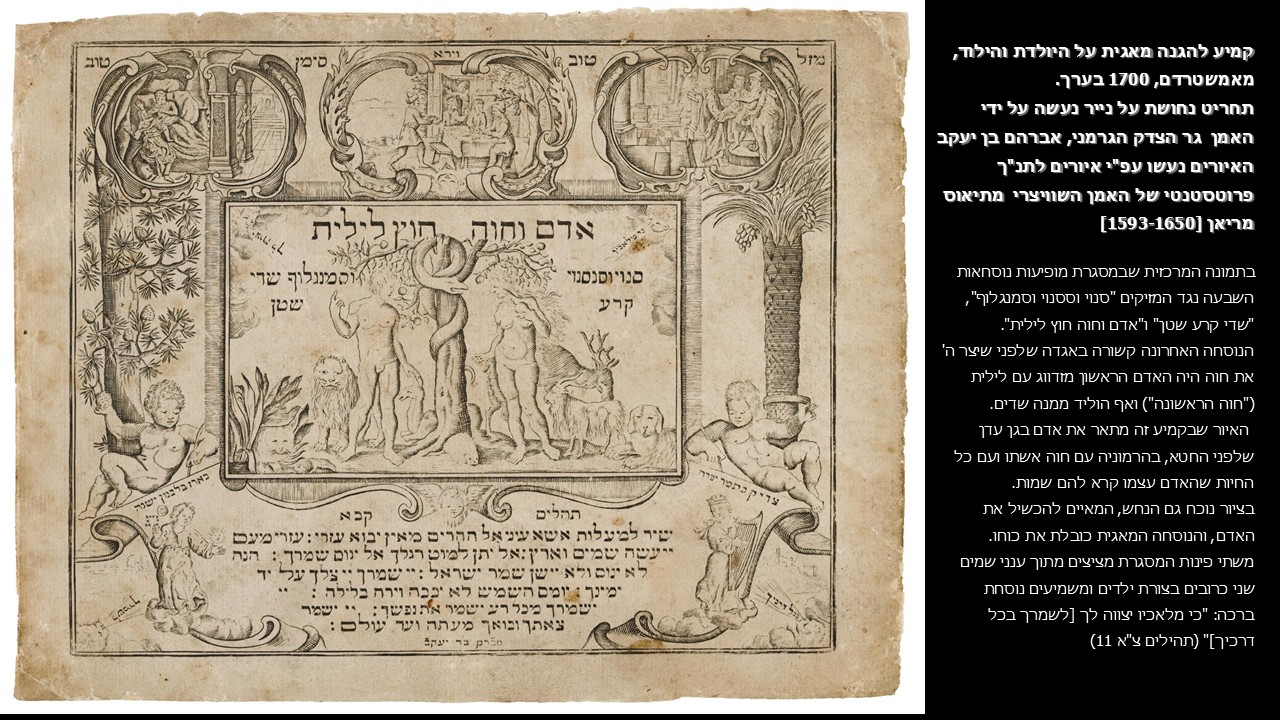 קמיע להגנה מאגית על היולדת והילוד,
מאמשטרדם, 1700 בערך.
תחריט נחושת על נייר נעשה על ידי
האמן גר הצדק הגרמני, אברהם בן יעקב
האיורים נעשו עפ"י איורים לתנ"ך
פרוטסטנטי של האמן השוויצרי מתיאוס
מריאן [1593-1650]
בתמונה המרכזית שבמסגרת מופיעות נוסחאות
השבעה נגד המזיקים "סנוי וססנוי וסמנגלוף",
"שדי קרע שטן" ו"אדם וחוה חוץ לילית".
הנוסחה האחרונה קשורה באגדה שלפני שיצר ה'
את חוה היה האדם הראשון מזדווג עם לילית
("חוה הראשונה") ואף הוליד ממנה שדים.
האיור שבקמיע זה מתאר את אדם בגן עדן
שלפני החטא, בהרמוניה עם חוה אשתו ועם כל
החיות שהאדם עצמו קרא להם שמות.
בציור נוכח גם הנחש, המאיים להכשיל את
האדם, והנוסחה המאגית כובלת את כוחו.
משתי פינות המסגרת מציצים מתוך ענני שמים
שני כרובים בצורת ילדים ומשמיעים נוסחת
ברכה: "כי מלאכיו יצווה לך [לשמרך בכל
דרכיך]" (תהילים צ"א 11)
מזל טוב וירא סימן טוב
אדם וחוה חוץ לילית
סנוי וסנסנוי וסמנגלוף שדי
קרע שטן
צדיק כתמר יפרח
כארז בלבנון ישגה
תהלים קכא
שיר למעלות אשא עיני אל ההרים מאין יבוא עזרי : עזרי מעם
ייי עשה שמים וארץ : אל יתן למוט רגלך אל ינום שמרך : הנה
לא ינום ולא יישן שמר ישראל : יי שמרך יי צלך על יד
ימינך : יומם השמש לא יככה וירח בלילה : יי
ישמורך מכל רע ישמר את נפשך : יי ישמר
צאתך ובואך מעתה ועד עולם :